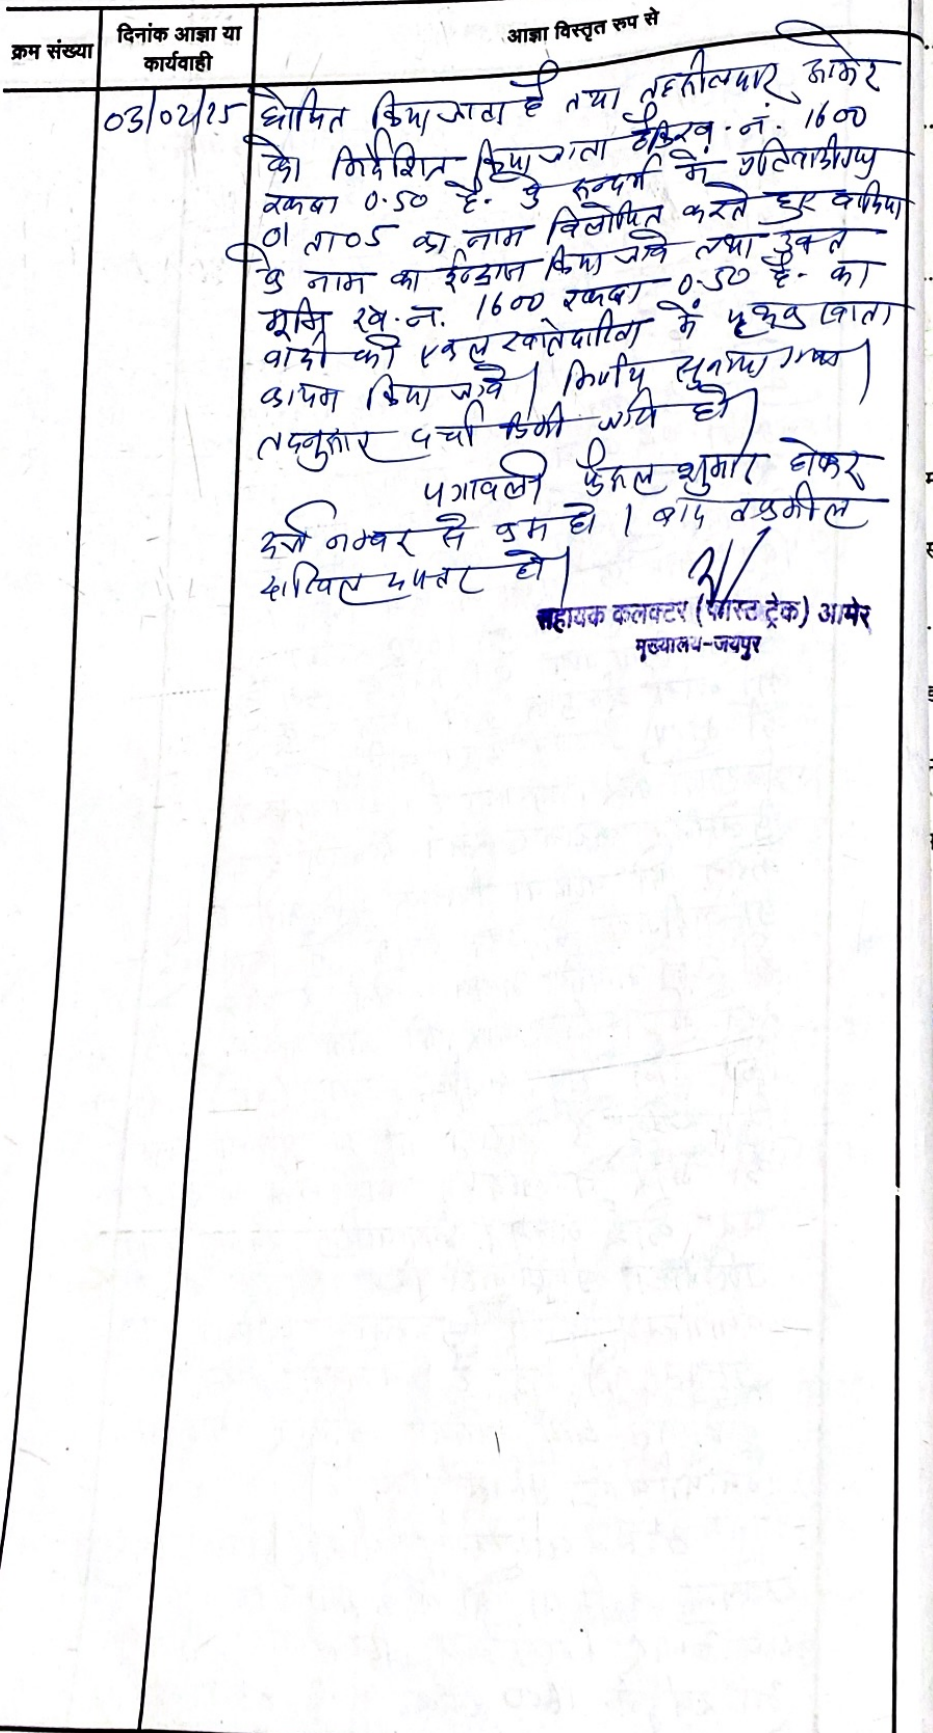 क्रम संख्या
दिनांक आज्ञा या
कार्यवाही
आज्ञा विस्तृत रूप से
03/02/25
घोषित किया जाता है तथा तहसीलदार आमेर
को निर्देशित किया जाता है कि ख. नं. 1600
रकबा 0.50 है. के सन्दर्भ में प्रतिवादीगण
01 ता 05 का नाम विलोपित करते हुए वादिया
के नाम का ईन्द्राज किया जावे तथा उक्त
भूमि ख. नं. 1600 रकबा 0.50 है. का
वादी की एकल खातेदारिता में पृथक खाता
कायम किया जावे। निर्णय सुनाया गया।
तदनुसार पर्चा डिक्री जारी हो।
पत्रावली फैसल शुमार होकर
दर्ज नम्बर से कम हो। बाद तकमील
दाखिल दफ्तर हो।
सहायक कलक्टर (फास्ट ट्रेक) आमेर
मुख्यालय-जयपुर